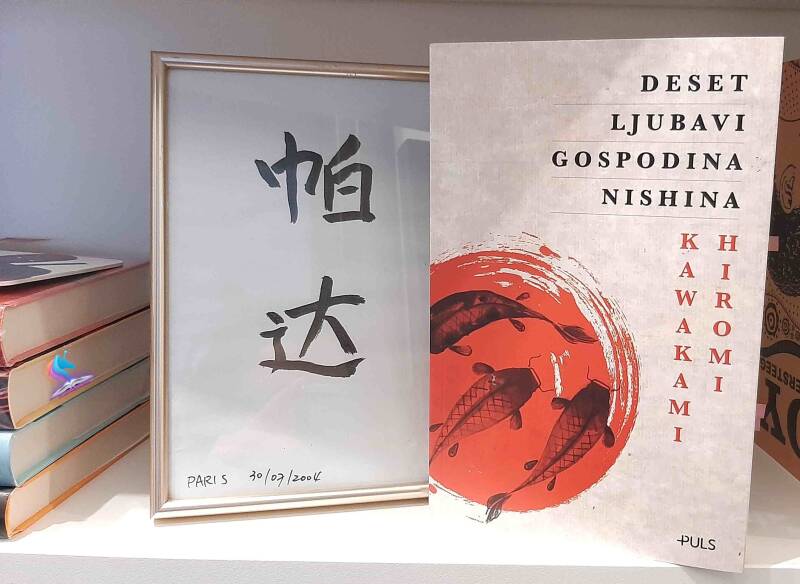 帕
达
PARIS 30/07/2004
DESET
LJUBAVI
GOSPODINA
NISHINA
KAWAKAMI
HIROMI
PULS